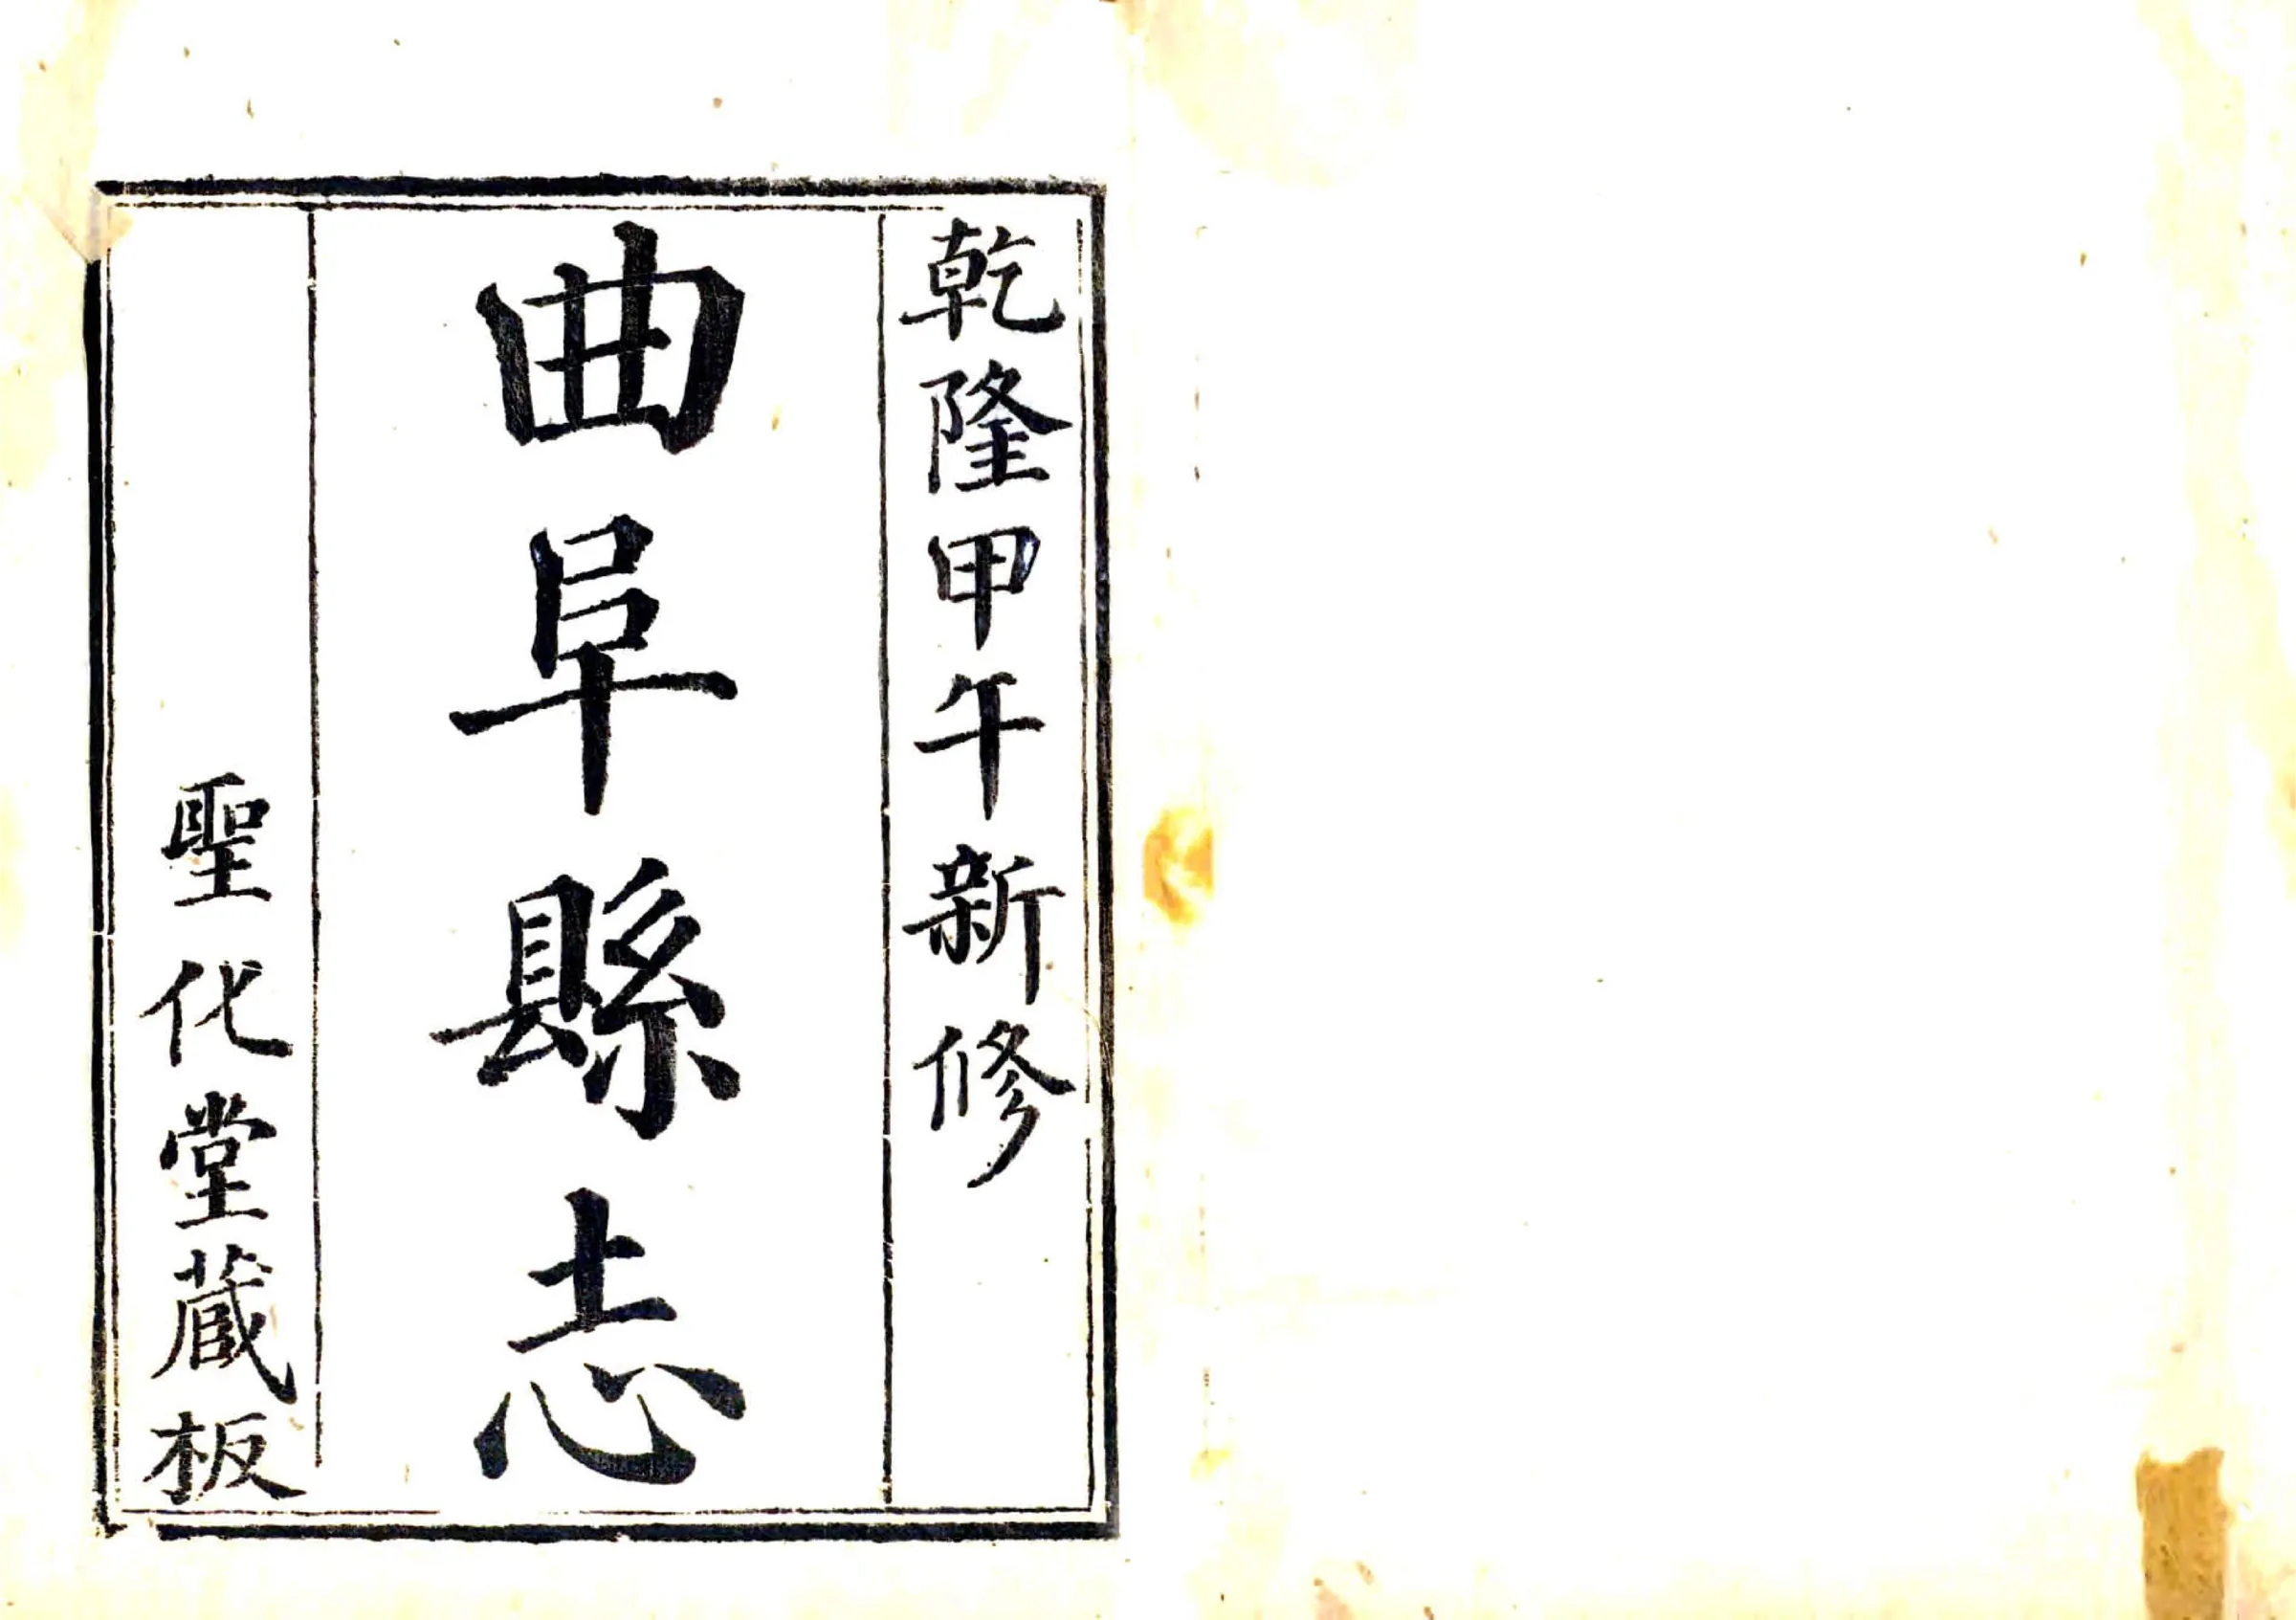 乾隆甲午新修
曲阜縣志
聖化堂蔵板